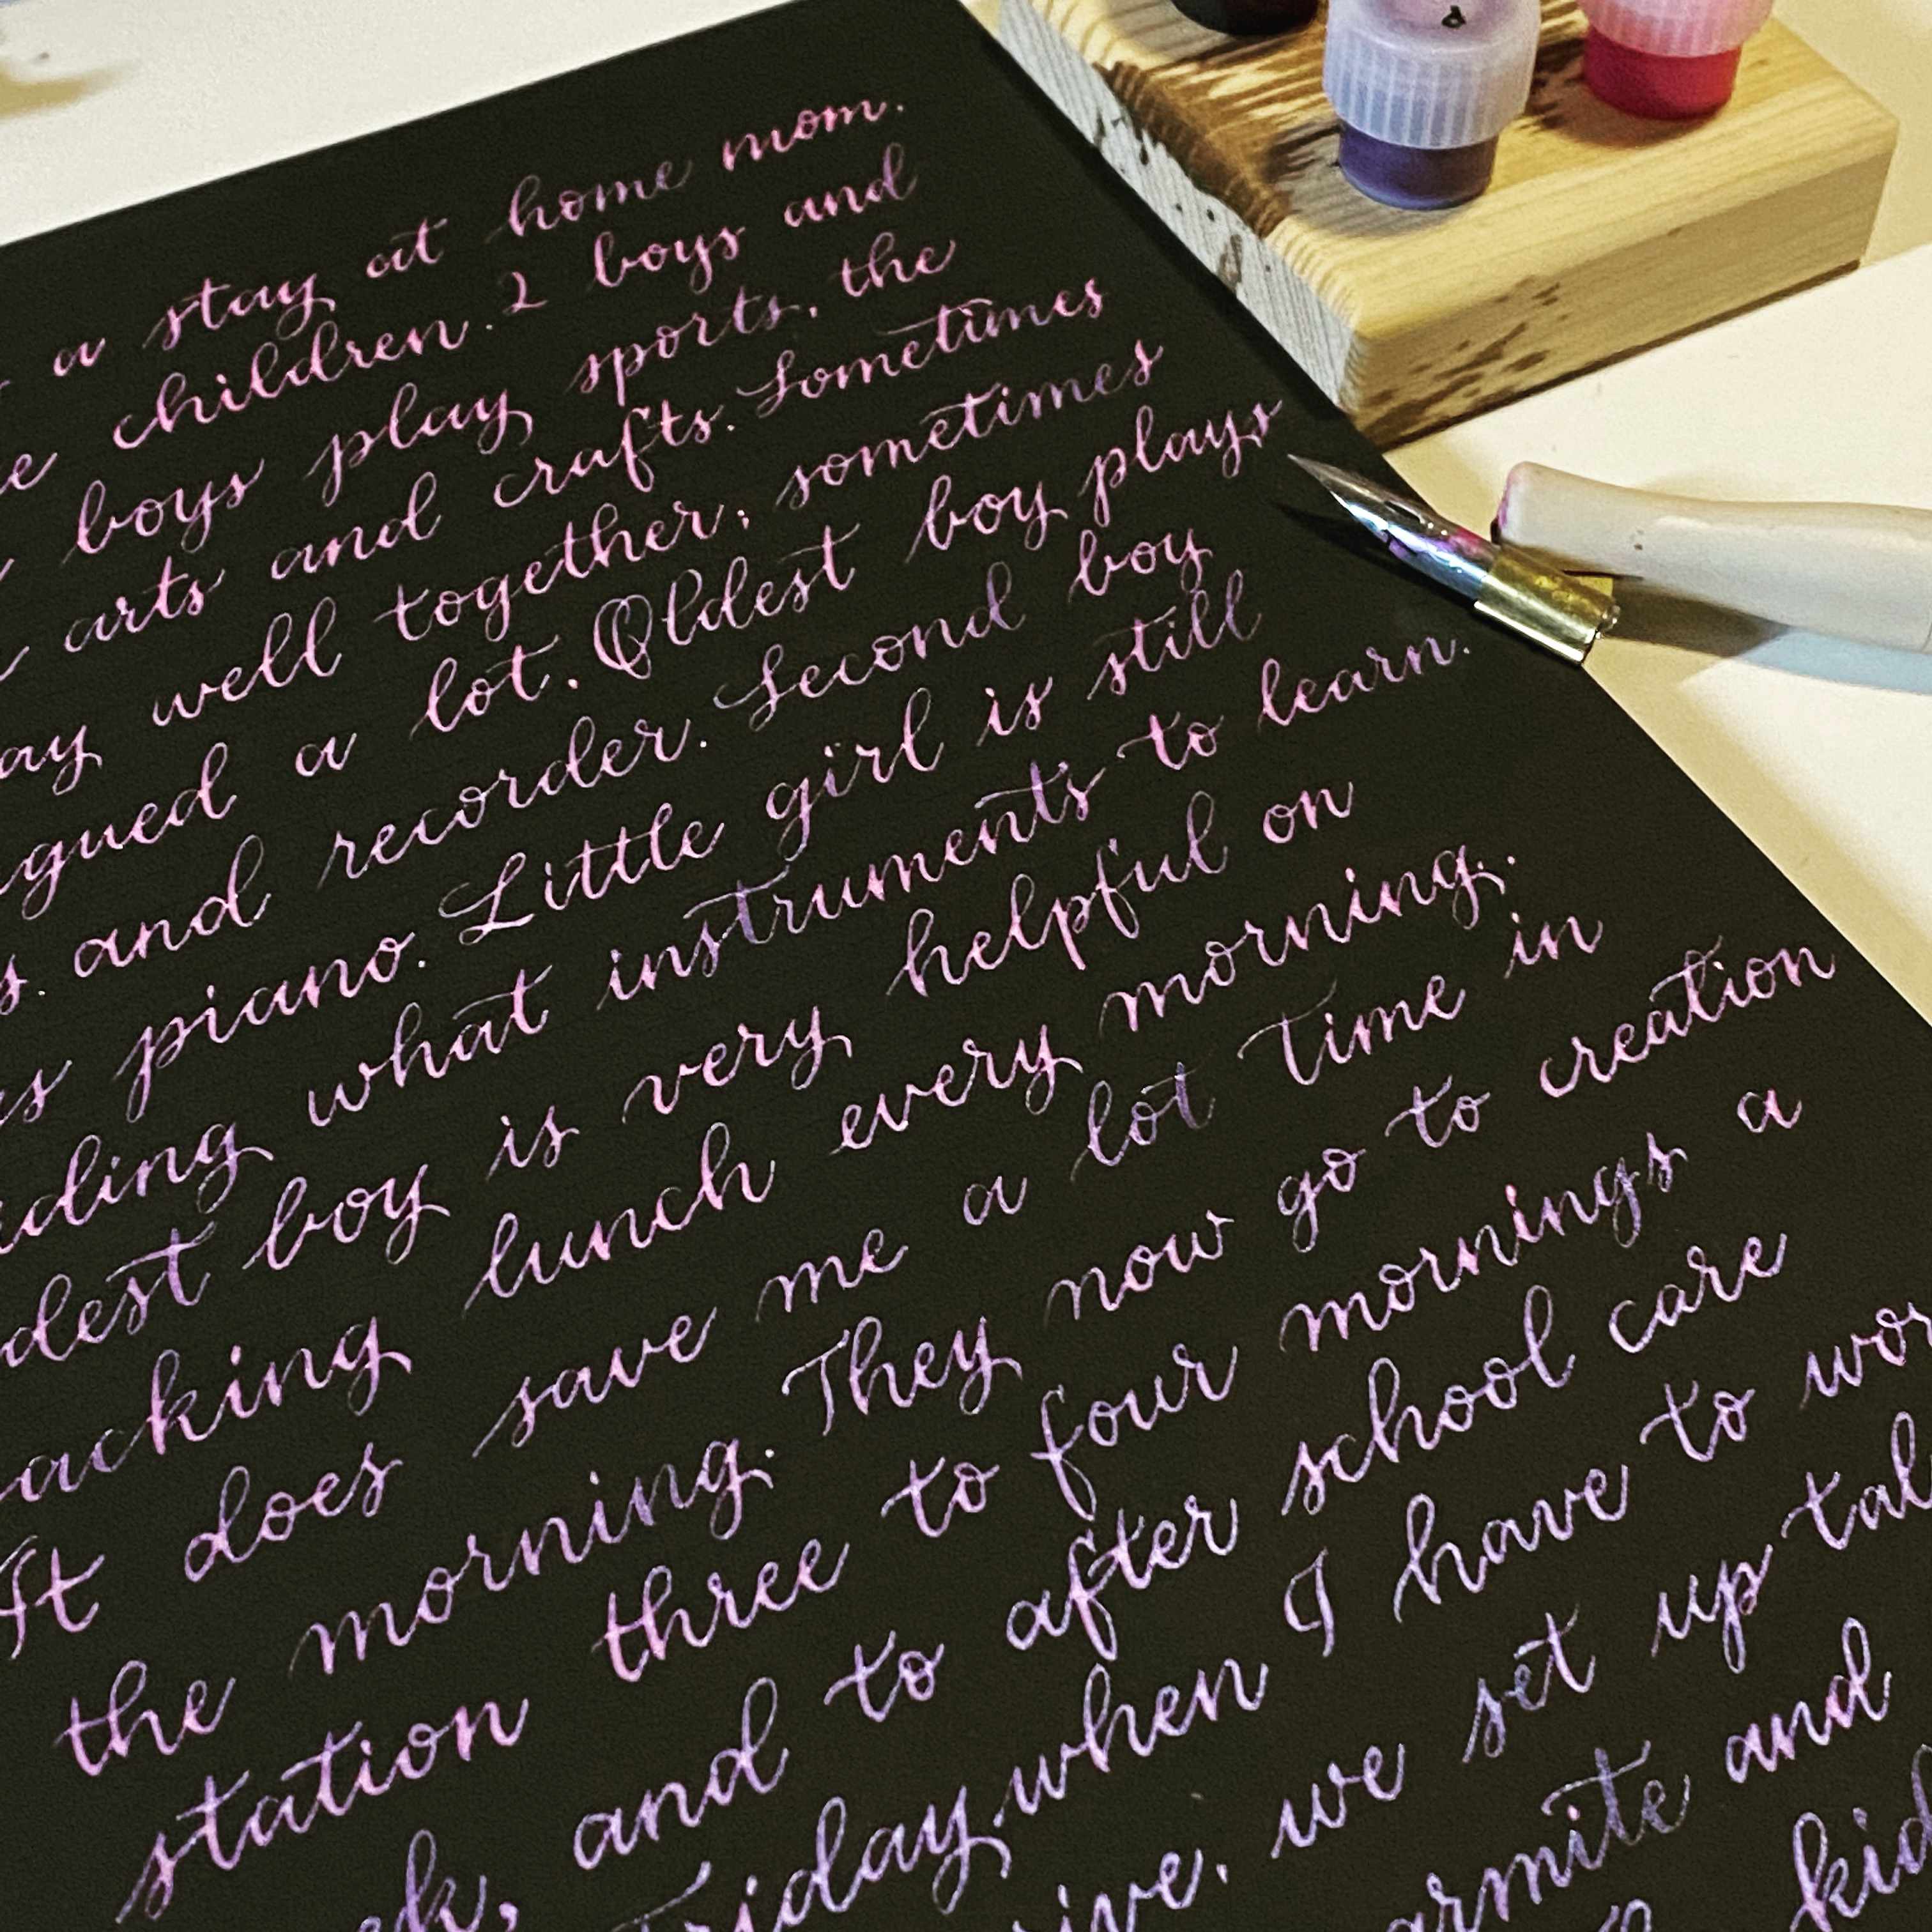 a stay at home mom.
children. 2 boys and
boys play sports, the
arts and crafts. Sometimes
well together, sometimes
a lot. Oldest boy plays
and recorder. Second boy
piano. Little girl is still
what instruments to learn.
boy is very helpful on
lunch every morning.
It does save me a lot time in
the morning. They now go to creation
station three to four mornings a
and to after school care
when I have to
we set up
and